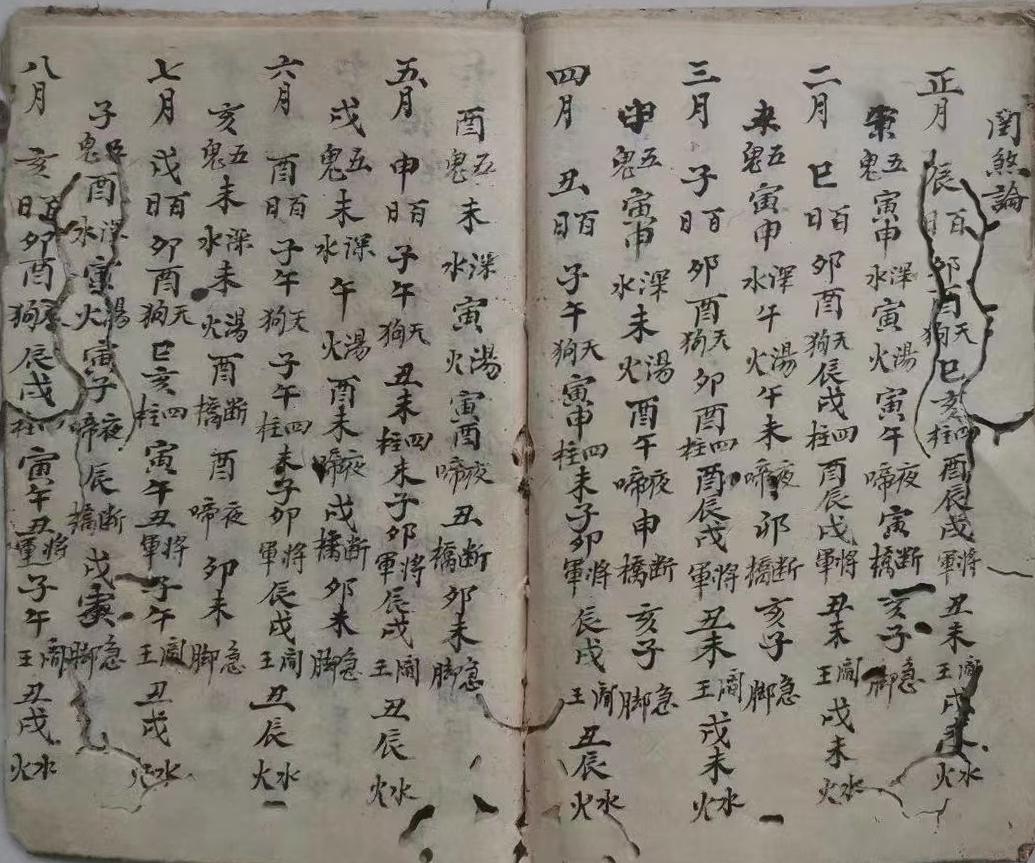 関煞論
正月 辰百日卯酉天狗巳亥四柱酉辰戌将軍丑未閻王戌未水火
五鬼寅申深水寅湯火寅午夜啼寅断橋亥子急脚
二月 巳百日卯酉天狗辰戌四柱酉辰戌将軍丑未閻王戌未水火
未五鬼寅申深水午湯火午未夜啼卯断橋亥子急脚
三月 子百日卯酉天狗卯酉四柱酉辰戌将軍丑未閻王戌未水火
申五鬼寅申深水未湯火酉午夜啼申断橋亥子急脚
四月 丑百日子午天狗寅申四柱未子卯将軍辰戌閻王丑辰水火
酉五鬼未深水寅湯火寅酉夜啼丑断橋卯未急脚
五月 申百日子午天狗丑未四柱未子卯将軍辰戌閻王丑辰水火
戌五鬼未深水午湯火酉未夜啼戌断橋卯未急脚
六月 酉百日子午天狗子午四柱未子卯将軍辰戌閻王丑辰水火
亥五鬼未深水未湯火酉断橋酉夜啼卯未急脚
七月 戌百日卯酉天狗巳亥四柱寅午丑将軍子午閻王丑戌水火
子五鬼酉深水寅湯火寅子夜啼辰断橋戌寅急脚
八月 亥百日卯酉天狗辰戌四柱寅午丑将軍子午閻王丑戌水火